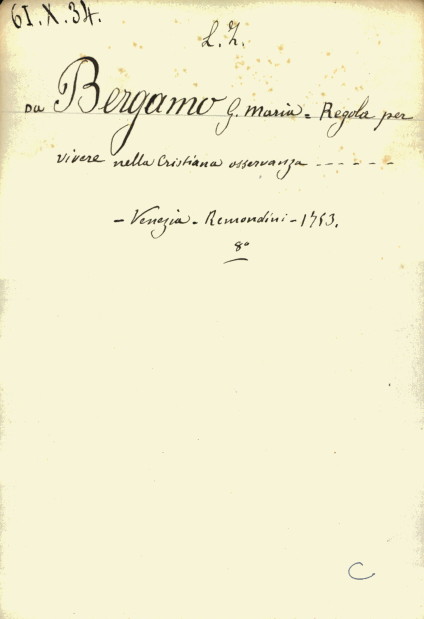 61.X.34.
L.Z.
Da Bergamo G. Maria = Regola per
vivere nella Cristiana osservanza ------
- Venezia - Remondini - 1753.
8°
C